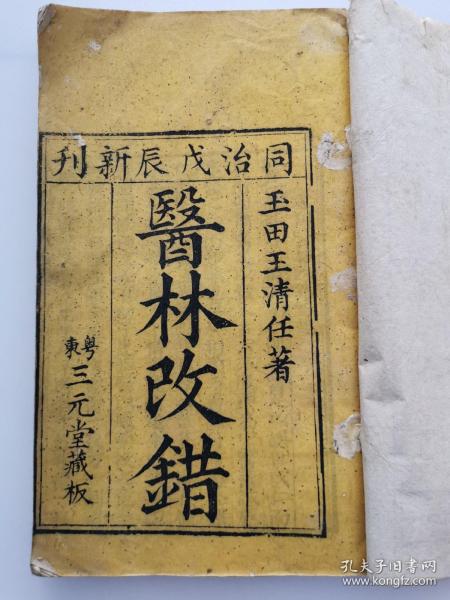 同治戊辰新刊
玉田王清任著
醫林改錯
粵東三元堂藏板
孔夫子旧书网
www.kongfz.com